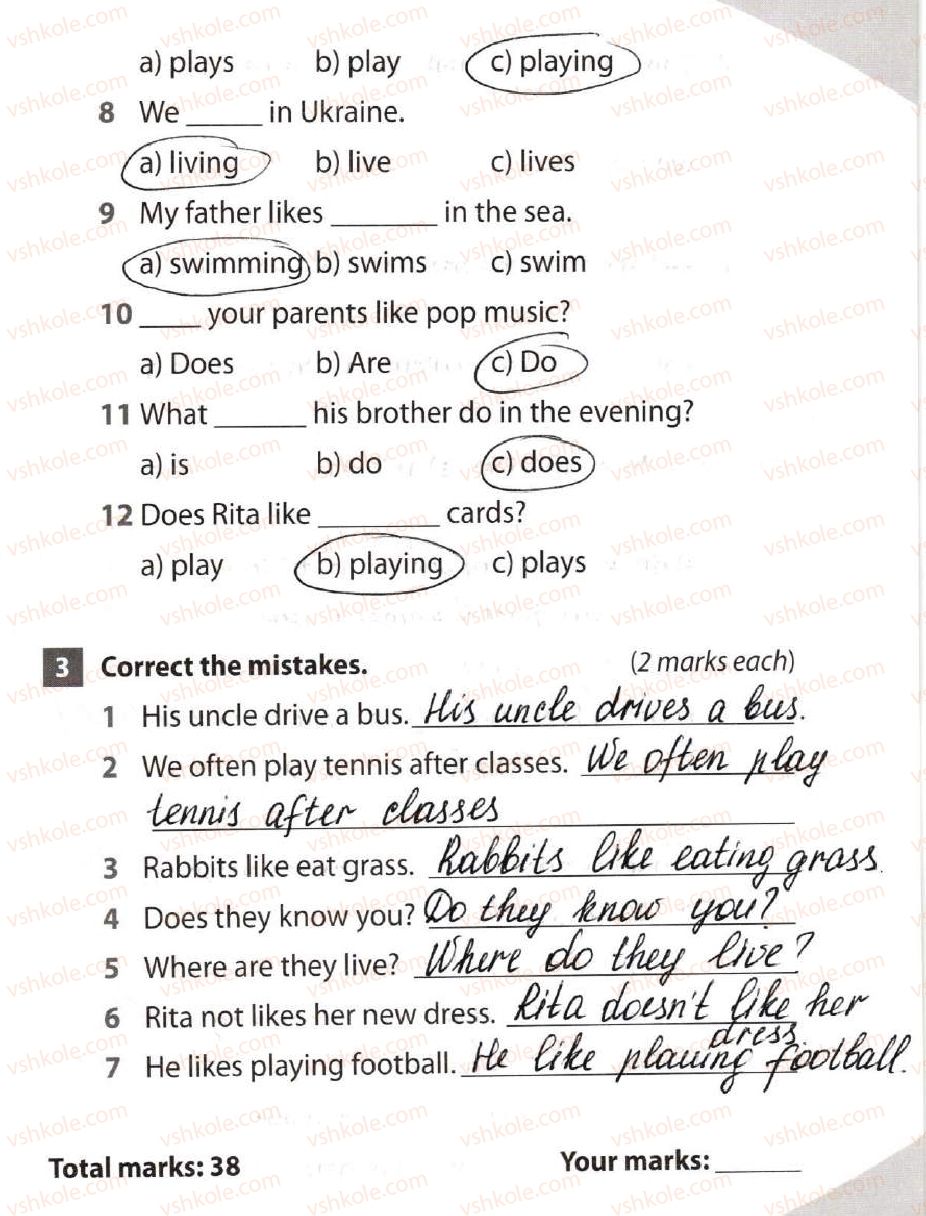 a) plays b) play c) playing
8 We _____ in Ukraine.
a) living b) live c) lives
9 My father likes _______ in the sea.
a) swimming b) swims c) swim
10 ____ your parents like pop music?
a) Does b) Are c) Do
11 What ______ his brother do in the evening?
a) is b) do c) does
12 Does Rita like ________ cards?
a) play b) playing c) plays
3 Correct the mistakes. (2 marks each)
1 His uncle drive a bus. His uncle drives a bus.
2 We often play tennis after classes. We often play
tennis after classes
3 Rabbits like eat grass. Rabbits like eating grass.
4 Does they know you? Do they know you?
5 Where are they live? Where do they live?
6 Rita not likes her new dress. Rita doesn't like her
dress.
7 He likes playing football. He like plauing football.
Total marks: 38 Your marks: ______
vshkole.com